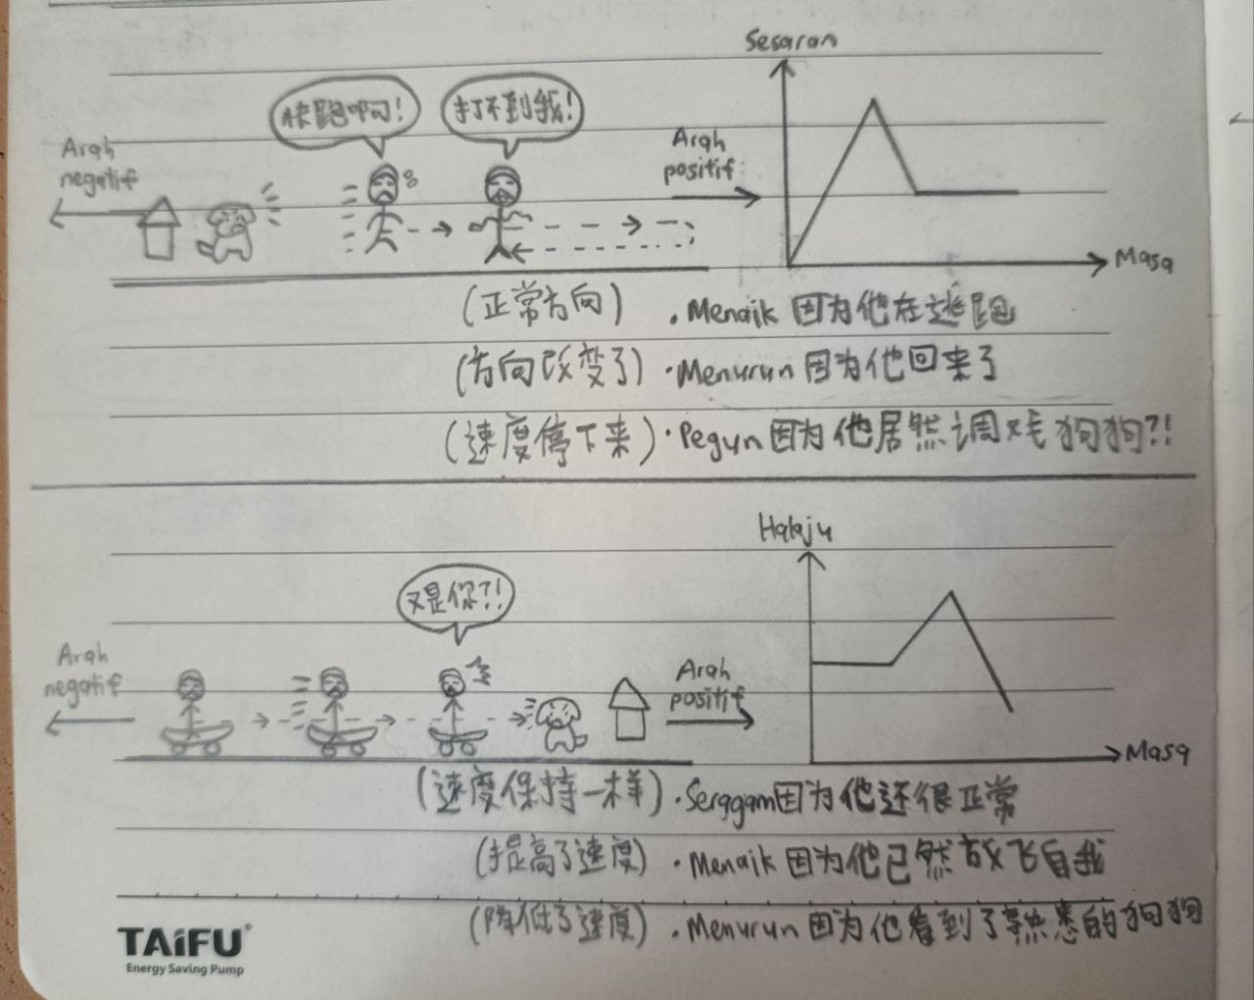 Sesaran
快跑啊!
打不到我!
Arah
negatif
Arah
positif
Masa
(正常方向) . Menaik 因为他在逃跑
(方向改变了) · Menurun 因为他回来了
(速度停下来) · Pegun 因为他居然调戏狗狗?!
Halaju
又是你?!
Arah
negatif
Arah
positif
Masa
(速度保持一样) · Seragam 因为他还很正常
(提高了速度) · Menaik 因为他已然放飞自我
(降低了速度) . Menurun 因为他看到了熟悉的狗狗
TAiFU®
Energy Saving Pump